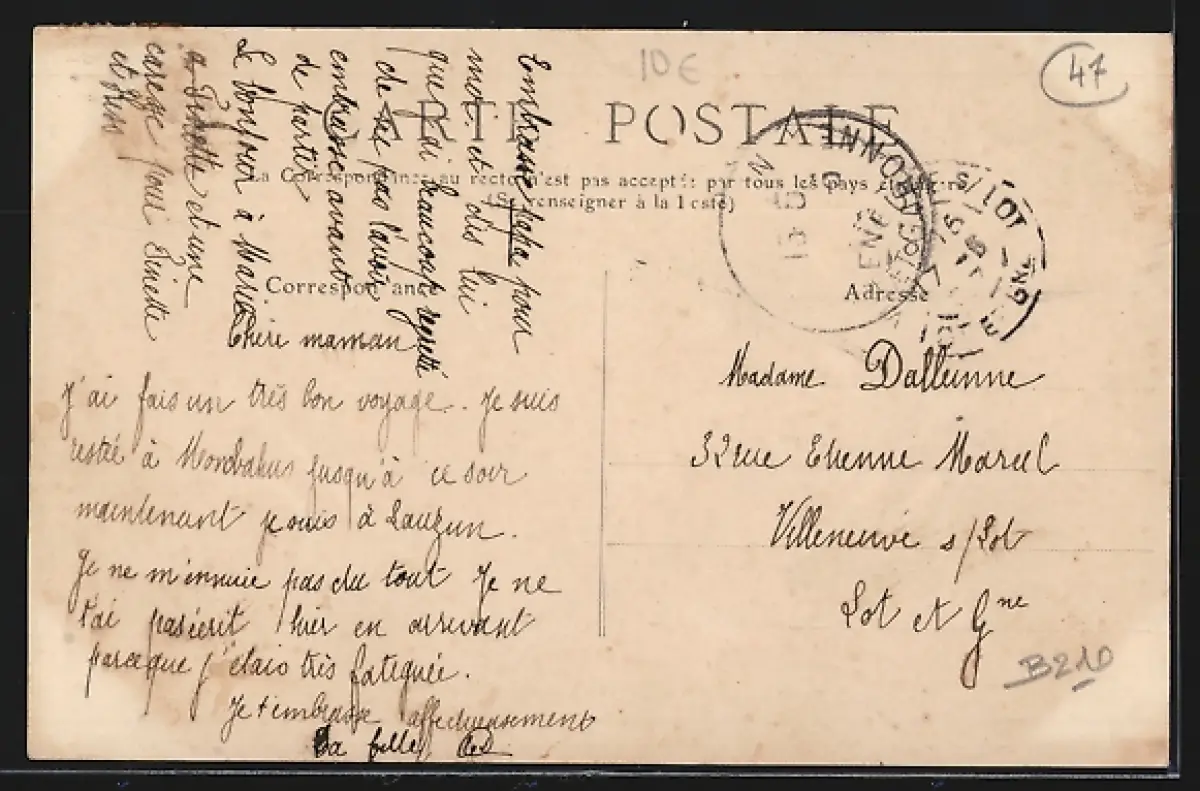 10€
47
CARTE POSTALE
La Correspondance au recto n'est pas acceptée par tous les pays étrangers
(Se renseigner à la Poste)
Correspondance
Adresse
Chère maman
J'ai fais un très bon voyage. Je suis
restée à Monbahus jusqu'à ce soir
maintenant je suis à Lauzun.
Je ne m'ennuie pas du tout Je ne
t'ai pas écrit hier en arrivant
parceque j'étais très fatiguée.
Je t'embrasse affectueusement
Ta fille
Embrasse papa pour
moi et dis lui
que j'ai beaucoup regretté
de ne pas l'avoir
embrassé avant
de partir
Le bonjour à Maria
a Finette et une
caresse pour Finette
et
Madame Dalleinne
32 rue Etienne Marcel
Villeneuve s/Lot
Lot et Gne
B210
S/LOT
LOT-ET-GARONNE